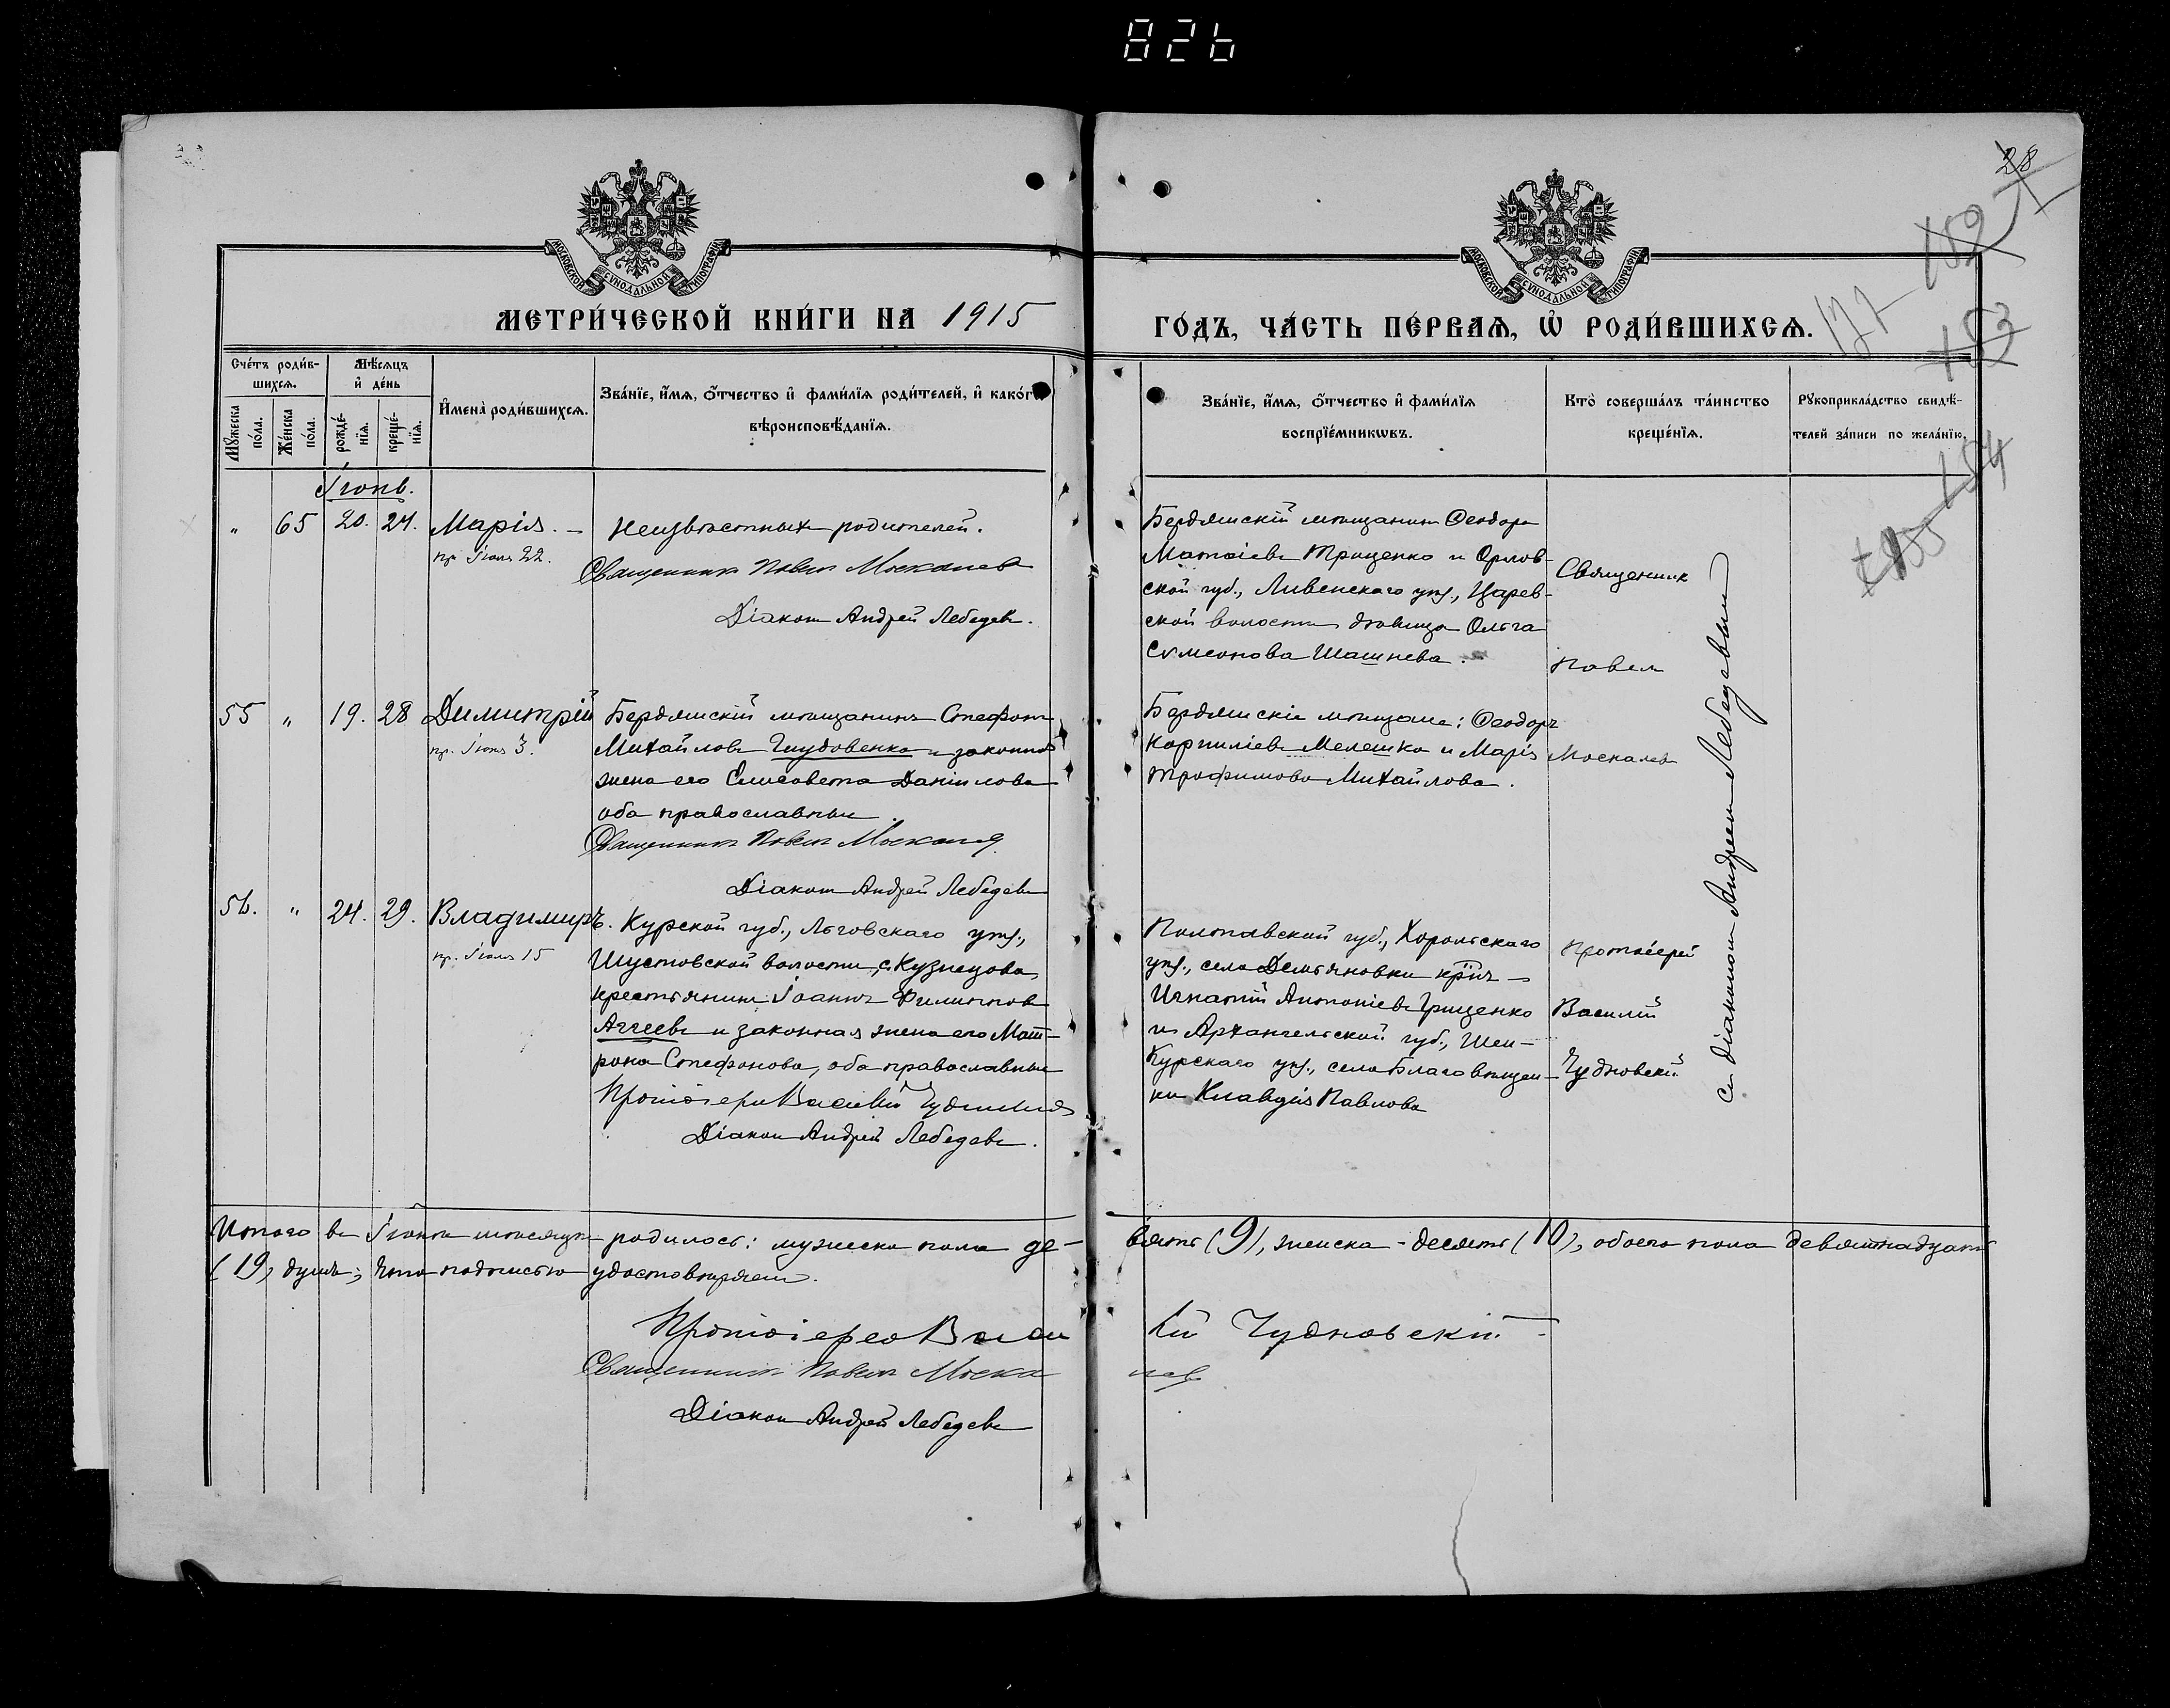 826
28
159
177
153
154
155
МОСКОВСКОЙ СУНОДАЛЬНОЙ ТИПОГРАФІИ
МОСКОВСКОЙ СУНОДАЛЬНОЙ ТИПОГРАФІИ
МЕТРИ́ЧЕСКОЙ КНИ́ГИ НА 1915
ГО́ДЪ, ЧА́СТЬ ПЕ́РВАѦ, Ѽ РОДИ́ВШИХСѦ.
Сче́тъ роди́в-
шихсѧ.
Мꙋ́жеска по́ла.
Же́нска по́ла.
Мѣ́сѧцъ
и҆ де́нь
рожде́-
нїѧ.
креще́-
нїѧ.
И҆мена̀ роди́вшихсѧ.
Зва́нїе, и҆́мѧ, ѻ҆́тчество и҆ фами́лїѧ роди́телей, и҆ како́гѡ
вѣроисповѣ́данїѧ.
Зва́нїе, и҆́мѧ, ѻ҆́тчество и҆ фами́лїѧ
воспрїе́мникѡвъ.
Кто̀ соверша́лъ та́инство
креще́нїѧ.
Рꙋкоприкла́дство свидѣ́-
телей за́писи по жела́нїю.
Іюнь.
„ 65 20. 24. Марія. – Неизвѣстныхъ родителей.
пр. Іюля 22.
Священникъ Павелъ Москалевъ
Діаконъ Андрей Лебедевъ.
Бердянскій мѣщанинъ Ѳеодоръ
Матѳіевъ Троценко и Орлов-
ской губ., Ливенскаго уѣз., Царев-
ской волости дѣвица Ольга
Сѵмеонова Шашнева.
Священникъ
Павелъ
Москалевъ
55 „ 19. 28 Димитрій Бердянскій мѣщанинъ Стефанъ
пр. Іюня 3.
Михайловъ Гнудовенко и законная
жена его Елисавета Даніилова
оба православные.
Священникъ Павелъ Москалевъ
Діаконъ Андрей Лебедевъ
Бердянскіе мѣщане: Ѳеодоръ
Корниліевъ Мелешко и Марія
Трофимова Михайлова.
56. „ 24. 29. Владимиръ. Курской губ., Льговскаго уѣз.,
пр. Іюля 15
Шустовской волости, с. Кузнецова,
крестьянинъ Іоаннъ Филипповъ
Аггеевъ и законная жена его Мат-
рона Стефанова, оба православные
Протоіерей Василій Чудновскій
Діаконъ Андрей Лебедевъ.
Полтавской губ., Хорольскаго
уѣз., села Демьяновки крн҃ъ
Игнатій Антоніевъ Грищенко
и Архангельской губ., Шен-
курскаго уѣз., села Благовѣщен-
ки Клавдія Павлова
Протоіерей
Василій
Чудновскій
съ діакономъ Андреемъ Лебедевымъ
Итого въ Іюнѣ мѣсяцѣ родилось: мужеска пола де-
вять (9), женска – десять (10), обоего пола девятнадцать
(19) душъ; что подписью удостовѣряемъ.
Протоіерей Васи
лій Чудновскій
Священникъ Павелъ Моска
левъ
Діаконъ Андрей Лебедевъ